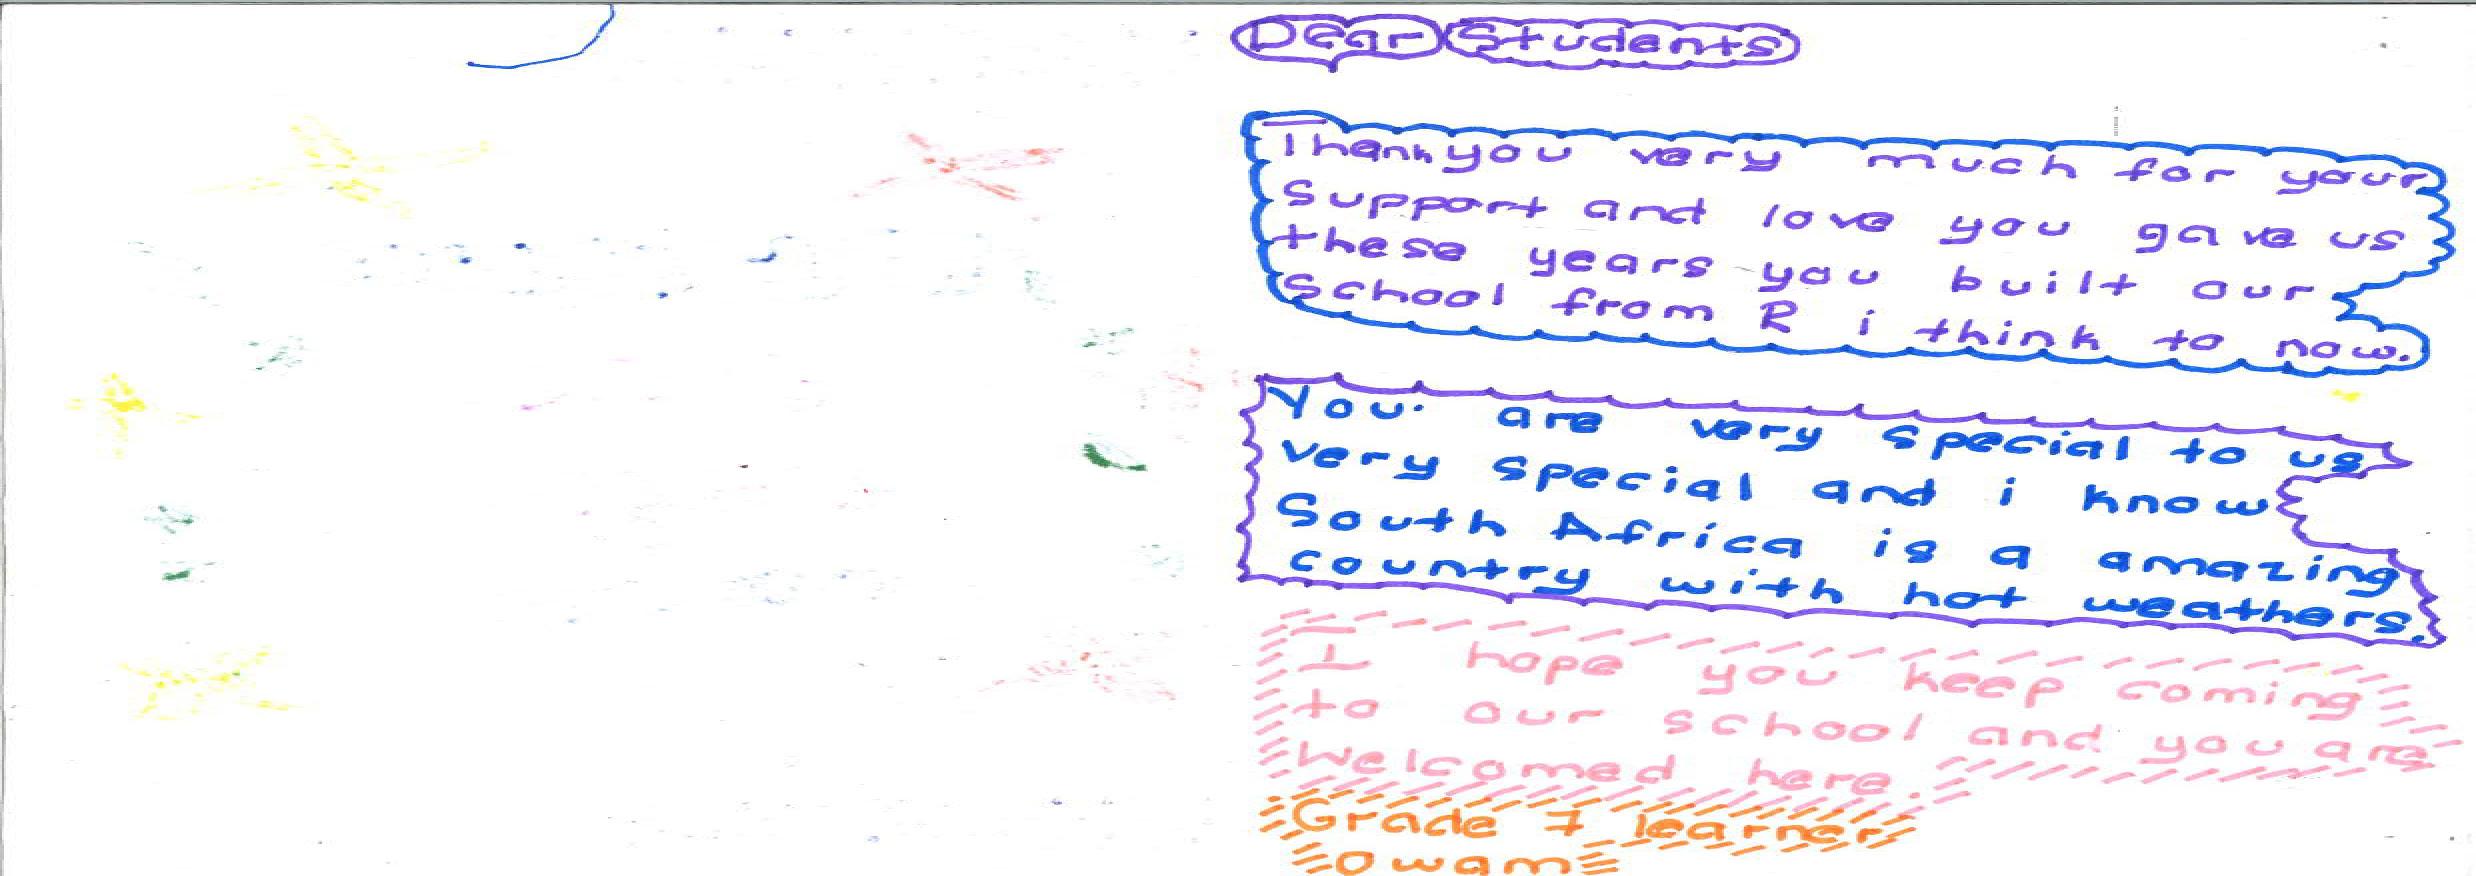 Dear Students
Thankyou very much for your
Support and love you gave us
these years you built our
School from R i think to now.
You are very special to us
very special and i know
South Africa is a amazing
country with hot weathers.
I hope you keep coming
to our school and you are
Welcomed here.
Grade 7 learner
Owam